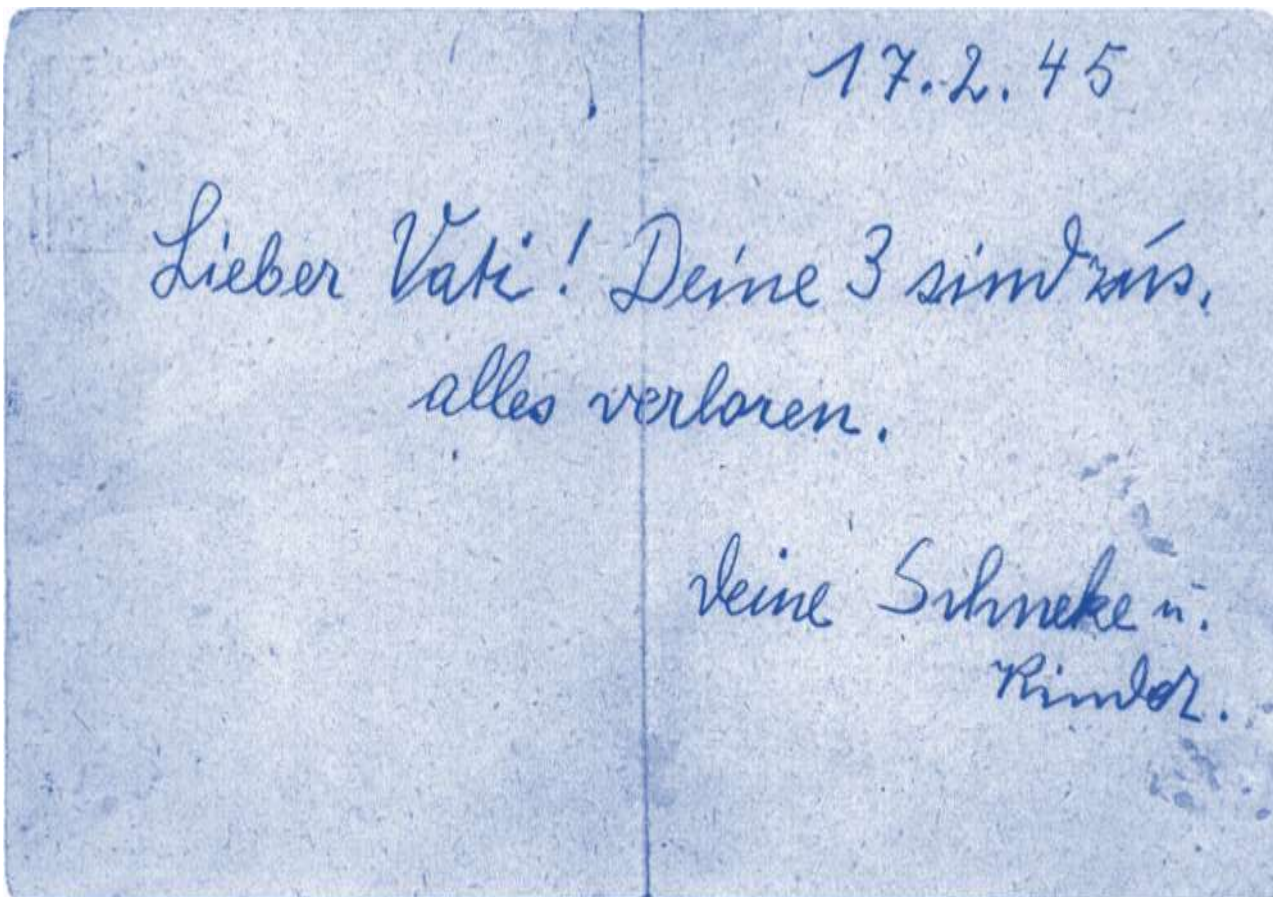 17.2.45
Lieber Vati! Deine 3 sind zus.
alles verloren.
Deine Schneke u.
Kinder.